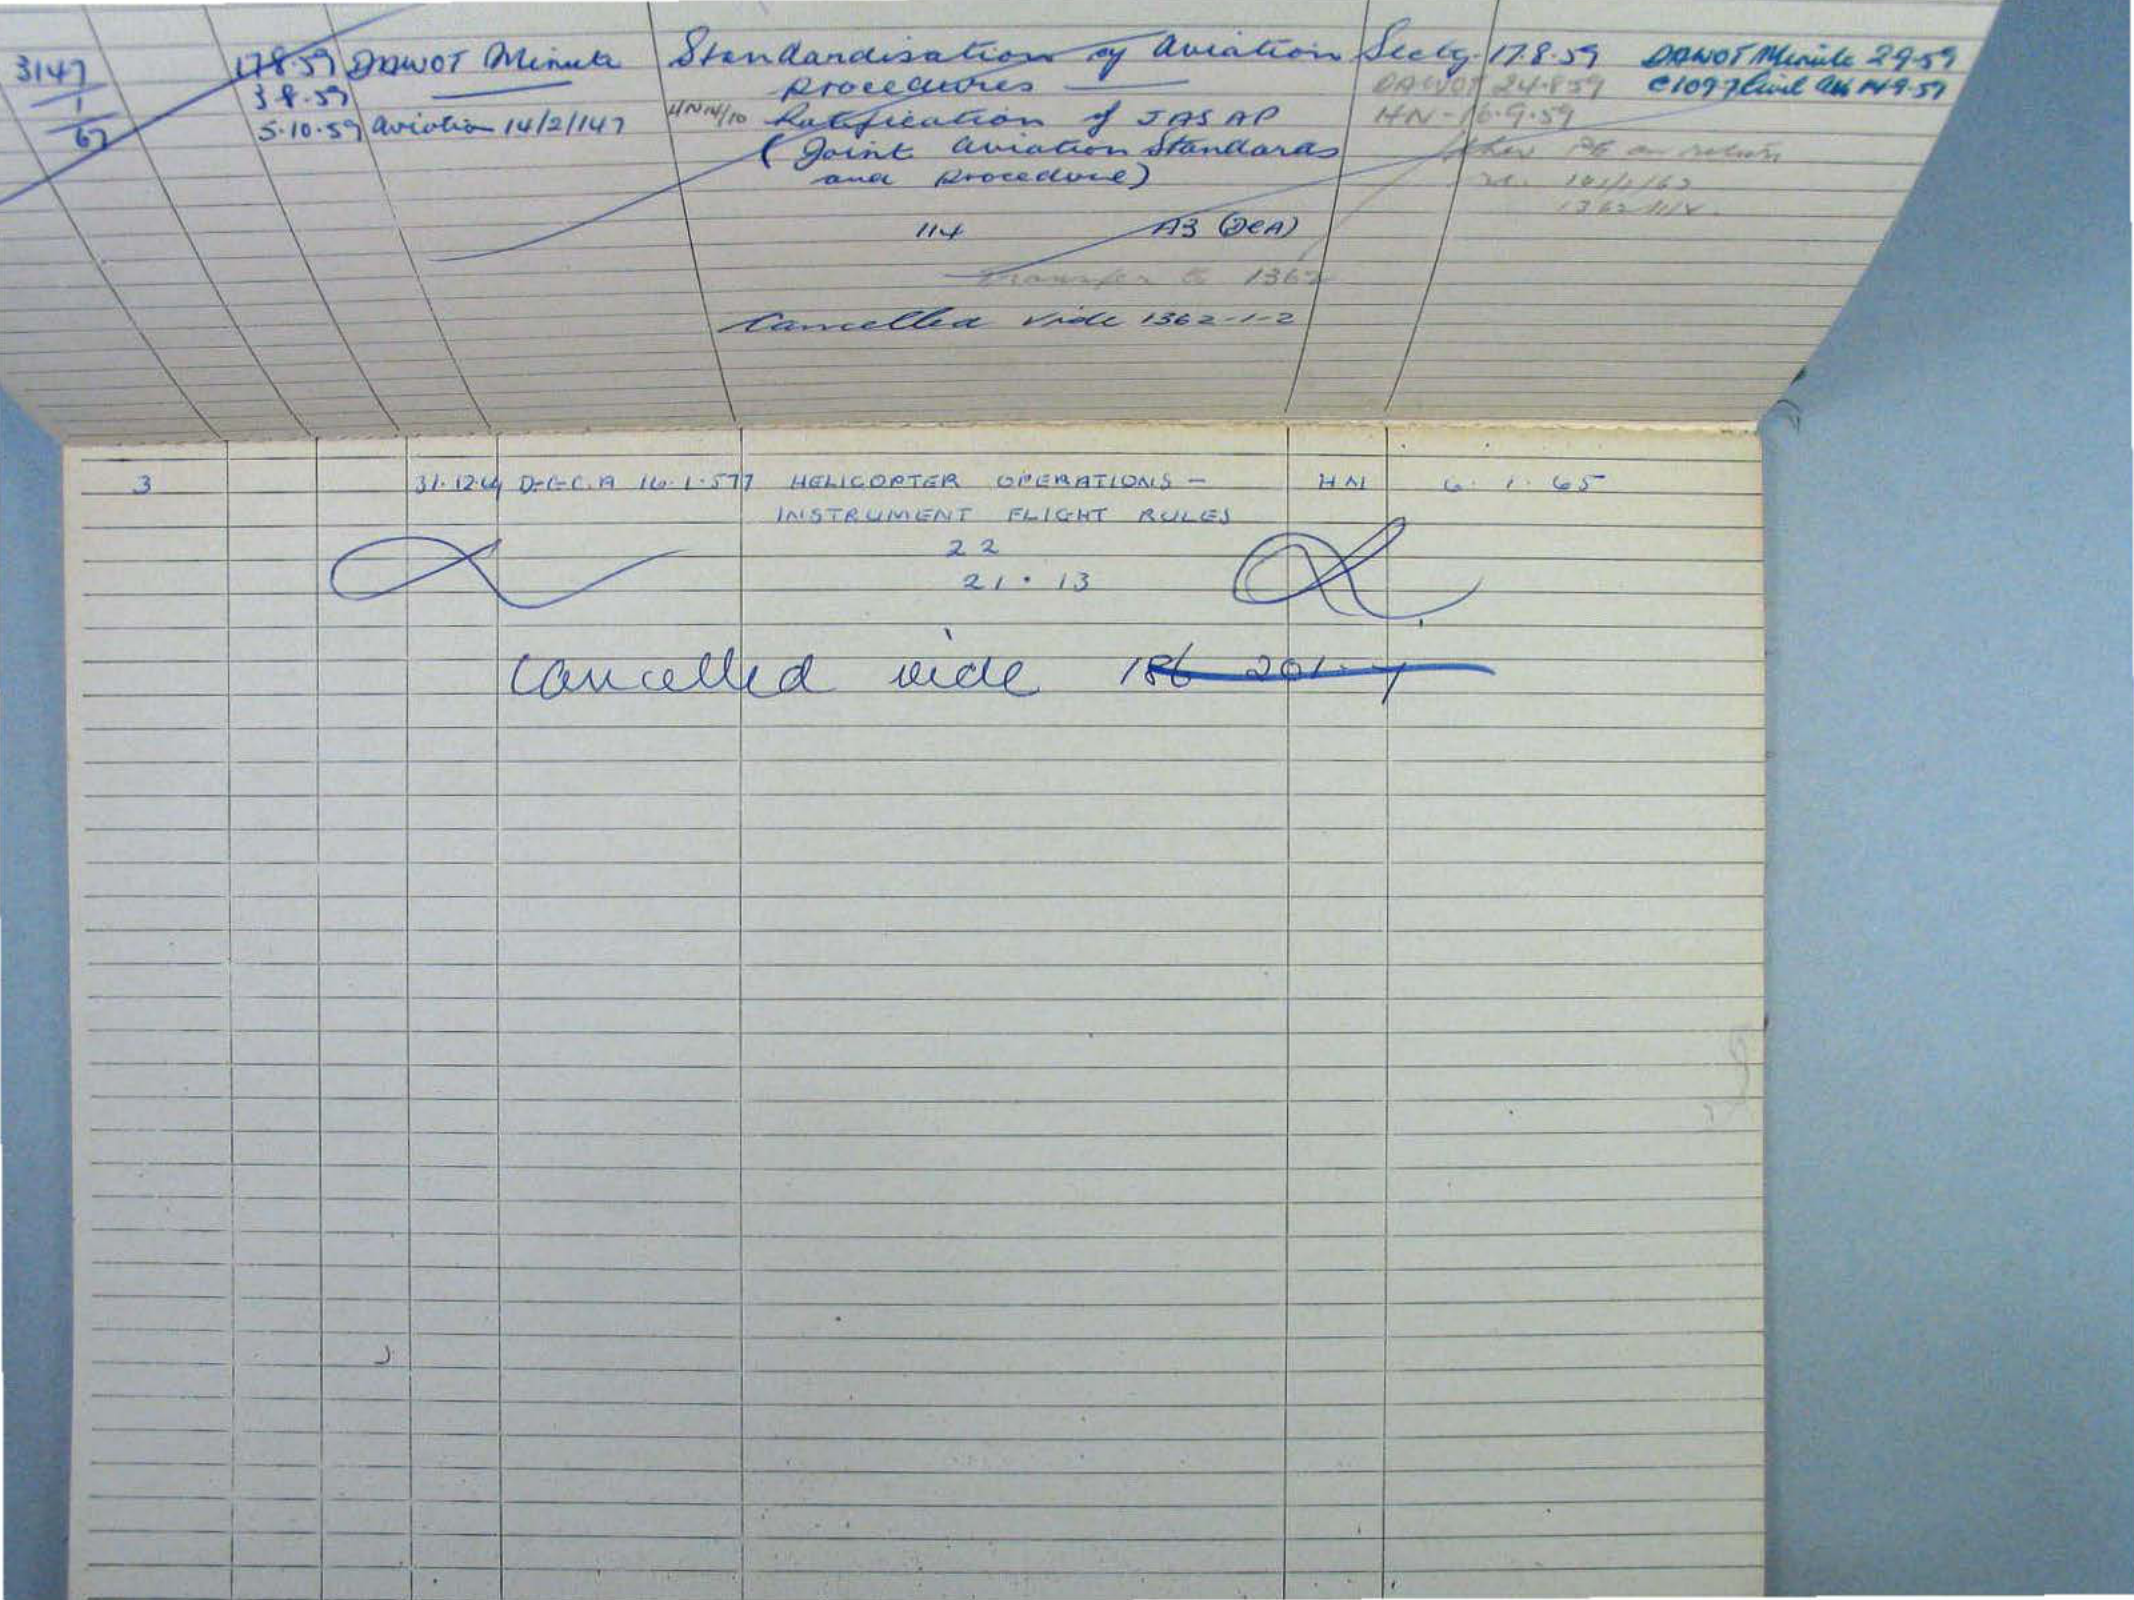 3147 17.8.59 DAWOT Minute Standardisation of Aviation Secty. 17.8.59 DAWOT Minute 2.9.59
1 3.8.59 Procedures DAWOT 24.8.59 C1097 Civil 14.9.59
67 5.10.59 Aviation 14/2/147 HN 14/10 Ratification of JASAP HN - 16.9.59
(Joint Aviation Standards on return
and Procedure)
114 A3 (DCA)
Transfer to 1362
Cancelled vide 1362-1-2
3 31.12.64 D.G.C.A 16.1.577 HELICOPTER OPERATIONS - HN 6.1.65
INSTRUMENT FLIGHT RULES
22
21.13
Cancelled vide